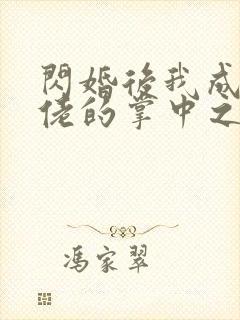 閃婚後我成
佬的掌中之
馮家翠